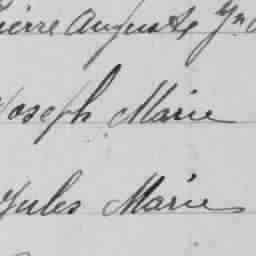 Pierre Auguste Yn
Joseph Marie
Jules Marie